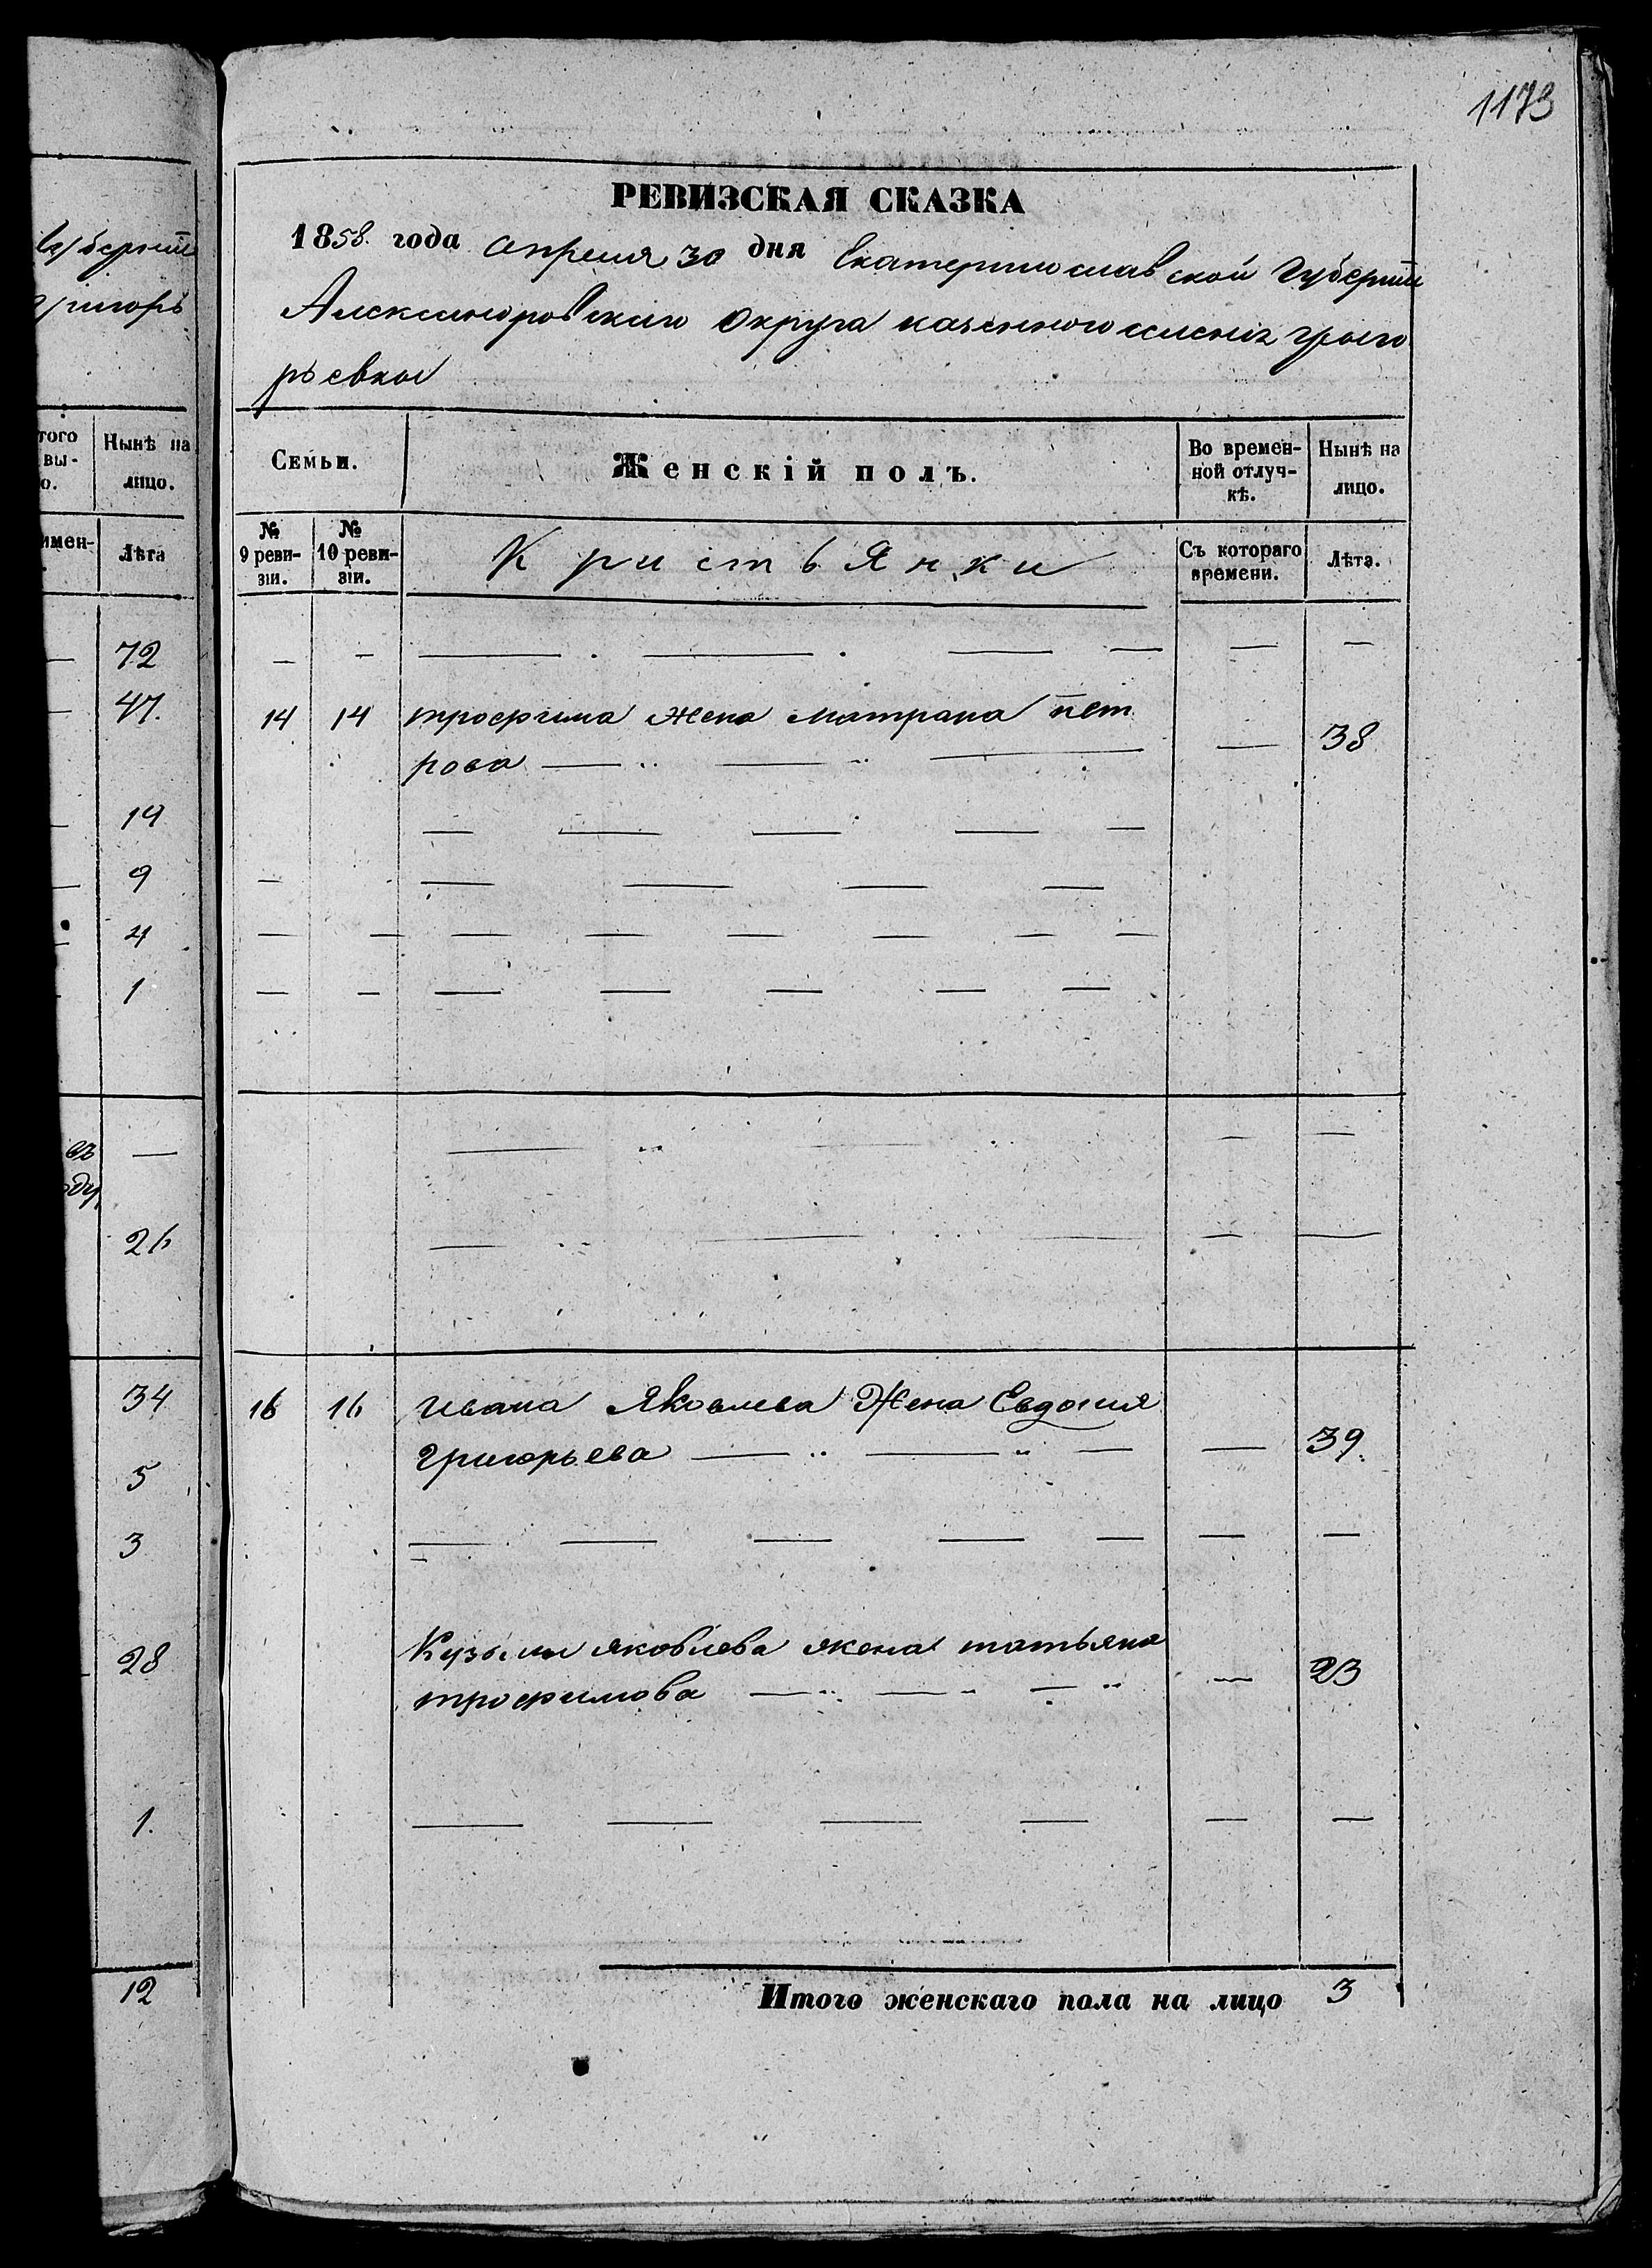 1173
губерніи
григорь
того
вы-
о.
Нынѣ на
лицо.
имен-
Лѣта
72
47.
19
9
4
1
—
оду
26
34
5
3
28
1.
12
РЕВИЗСКАЯ СКАЗКА
1858. года апреля 30 дня Екатеринославской губерніи
Александровскаго округа казенного селенія григо
рьевки
Семьи.
Женскій полъ.
Во времен-
ной отлуч-
кѣ.
Нынѣ на
лицо.
№
9 реви-
зіи.
№
10 реви-
зіи.
Кристьянки
Съ котораго
времени.
Лѣта.
14 14 трофима жена матрана пет
рова — 38
16 16 ивана Яковлева Жена Евдокия
григорьева — 39.
Кузьмы яковлева жена татьяна
трофимова — 23
Итого женскаго пола на лицо 3